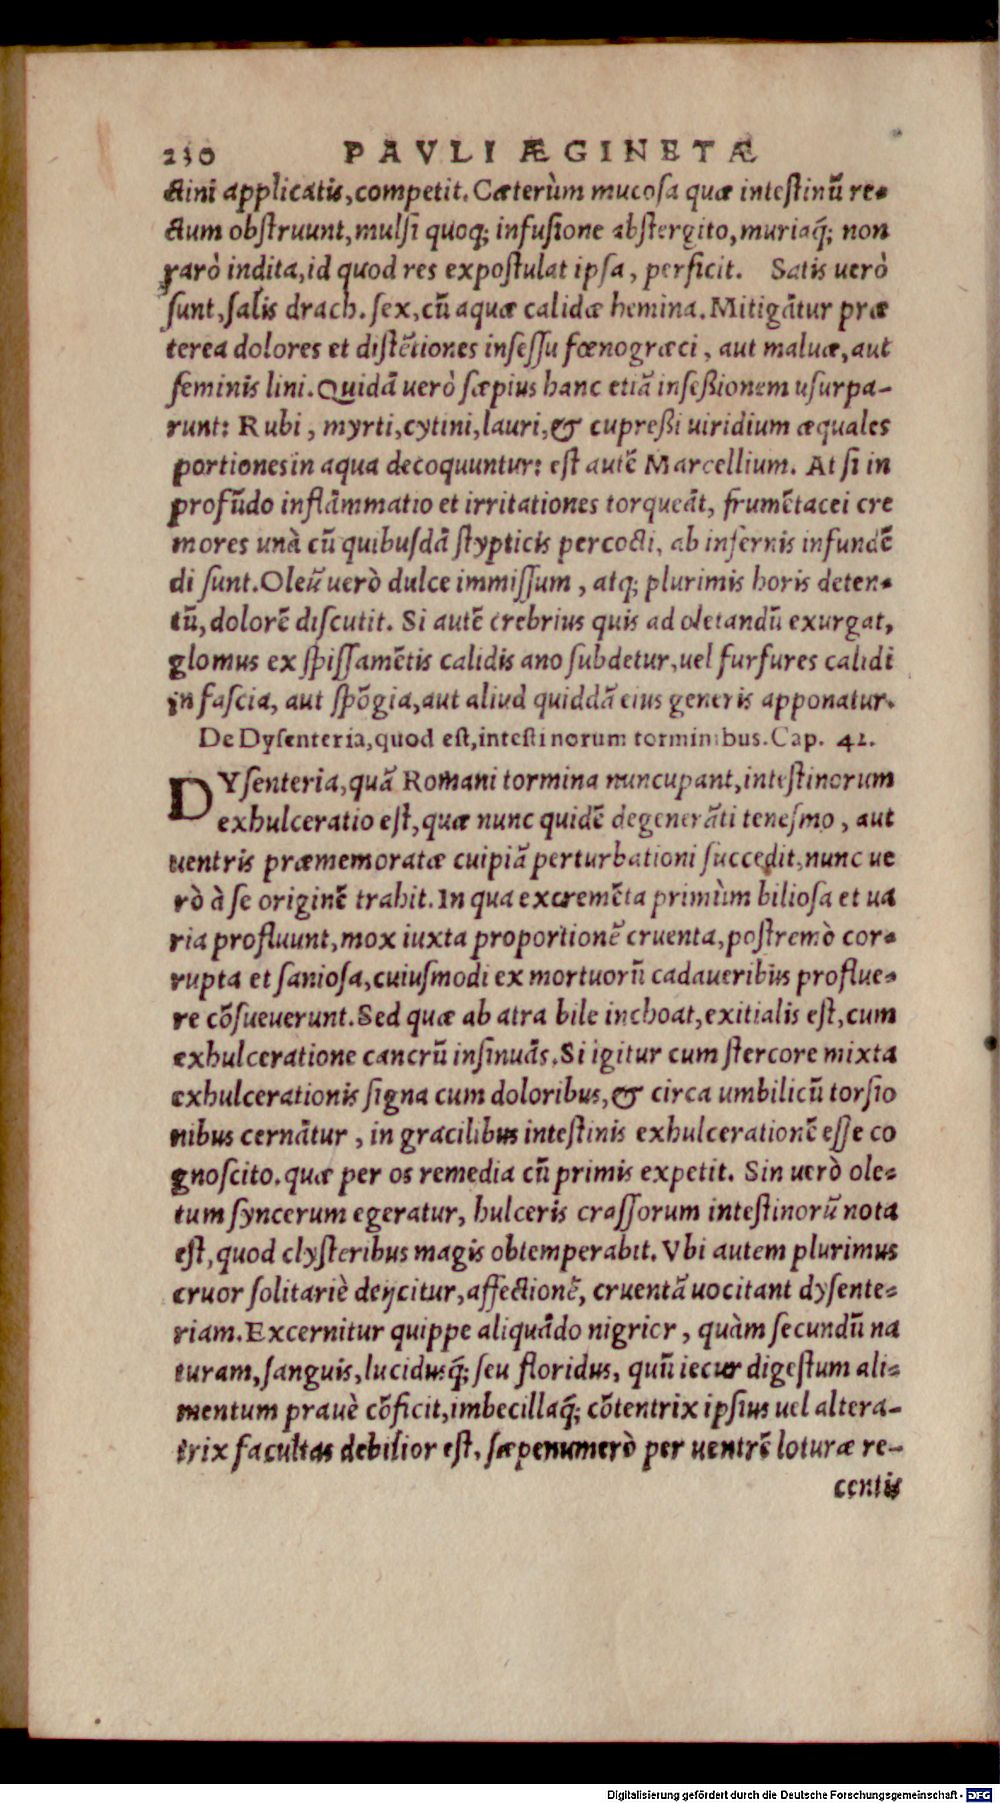 230 PAVLI ÆGINETÆ
ctini applicatis, competit. Cæterùm mucosa quæ intestinũ re-
ctum obstruunt, mulsi quoq; infusione abstergito, muriaq́; non
rarò indita, id quod res expostulat ipsa, perficit. Satis uerò
sunt, salis drach. sex, cũ aquæ calidæ hemina. Mitigãtur præ
terea dolores et distẽtiones insessu fœnogræci, aut maluæ, aut
seminis lini. Quidã uerò sæpius hanc etiã insessionem usurpa-
runt: Rubi, myrti, cytini, lauri, & cupressi uiridium æquales
portiones in aqua decoquuntur: est autẽ Marcellium. At si in
profũdo inflãmmatio et irritationes torqueãt, frumẽtacei cre
mores unà cũ quibusdã stypticis percocti, ab infernis infundẽ
di sunt. Oleũ uerò dulce immissum, atq; plurimis horis deten-
tũ, dolorẽ discutit. Si autẽ crebrius quis ad oletandũ exurgat,
glomus ex spissamẽtis calidis ano subdetur, uel furfures calidi
in fascia, aut spõgia, aut aliud quiddã eius generis apponatur.
De Dysenteria, quod est, intestinorum torminibus. Cap. 42.
DYsenteria, quã Romani tormina nuncupant, intestinorum
exhulceratio est, quæ nunc quidẽ degenerãti tenesmo, aut
uentris præmemoratæ cuipiã perturbationi succedit, nunc ue
rò à se originẽ trahit. In qua excremẽta primùm biliosa et ua
ria profluunt, mox iuxta proportionẽ cruenta, postremò cor-
rupta et saniosa, cuiusmodi ex mortuorũ cadaueribus proflue-
re cõsueuerunt. Sed quæ ab atra bile inchoat, exitialis est, cum
exhulceratione cancrũ insinuãs. Si igitur cum stercore mixta
exhulcerationis signa cum doloribus, & circa umbilicũ torsio
nibus cernãtur, in gracilibus intestinis exhulcerationẽ esse co
gnoscito. quæ per os remedia cũ primis expetit. Sin uerò ole-
tum syncerum egeratur, hulceris crassorum intestinorũ nota
est, quod clysteribus magis obtemperabit. Vbi autem plurimus
cruor solitariè deijcitur, affectionẽ, cruentã uocitant dysente-
riam. Excernitur quippe aliquãdo nigrior, quàm secundũ na
turam, sanguis, lucidusq́; seu floridus, quũ iecur digestum ali-
mentum prauè cõficit, imbecillaq́; cõtentrix ipsius uel altera-
trix facultas debilior est, sæpenumerò per uentrẽ loturæ re-
centis
Digitalisierung gefördert durch die Deutsche Forschungsgemeinschaft - DFG